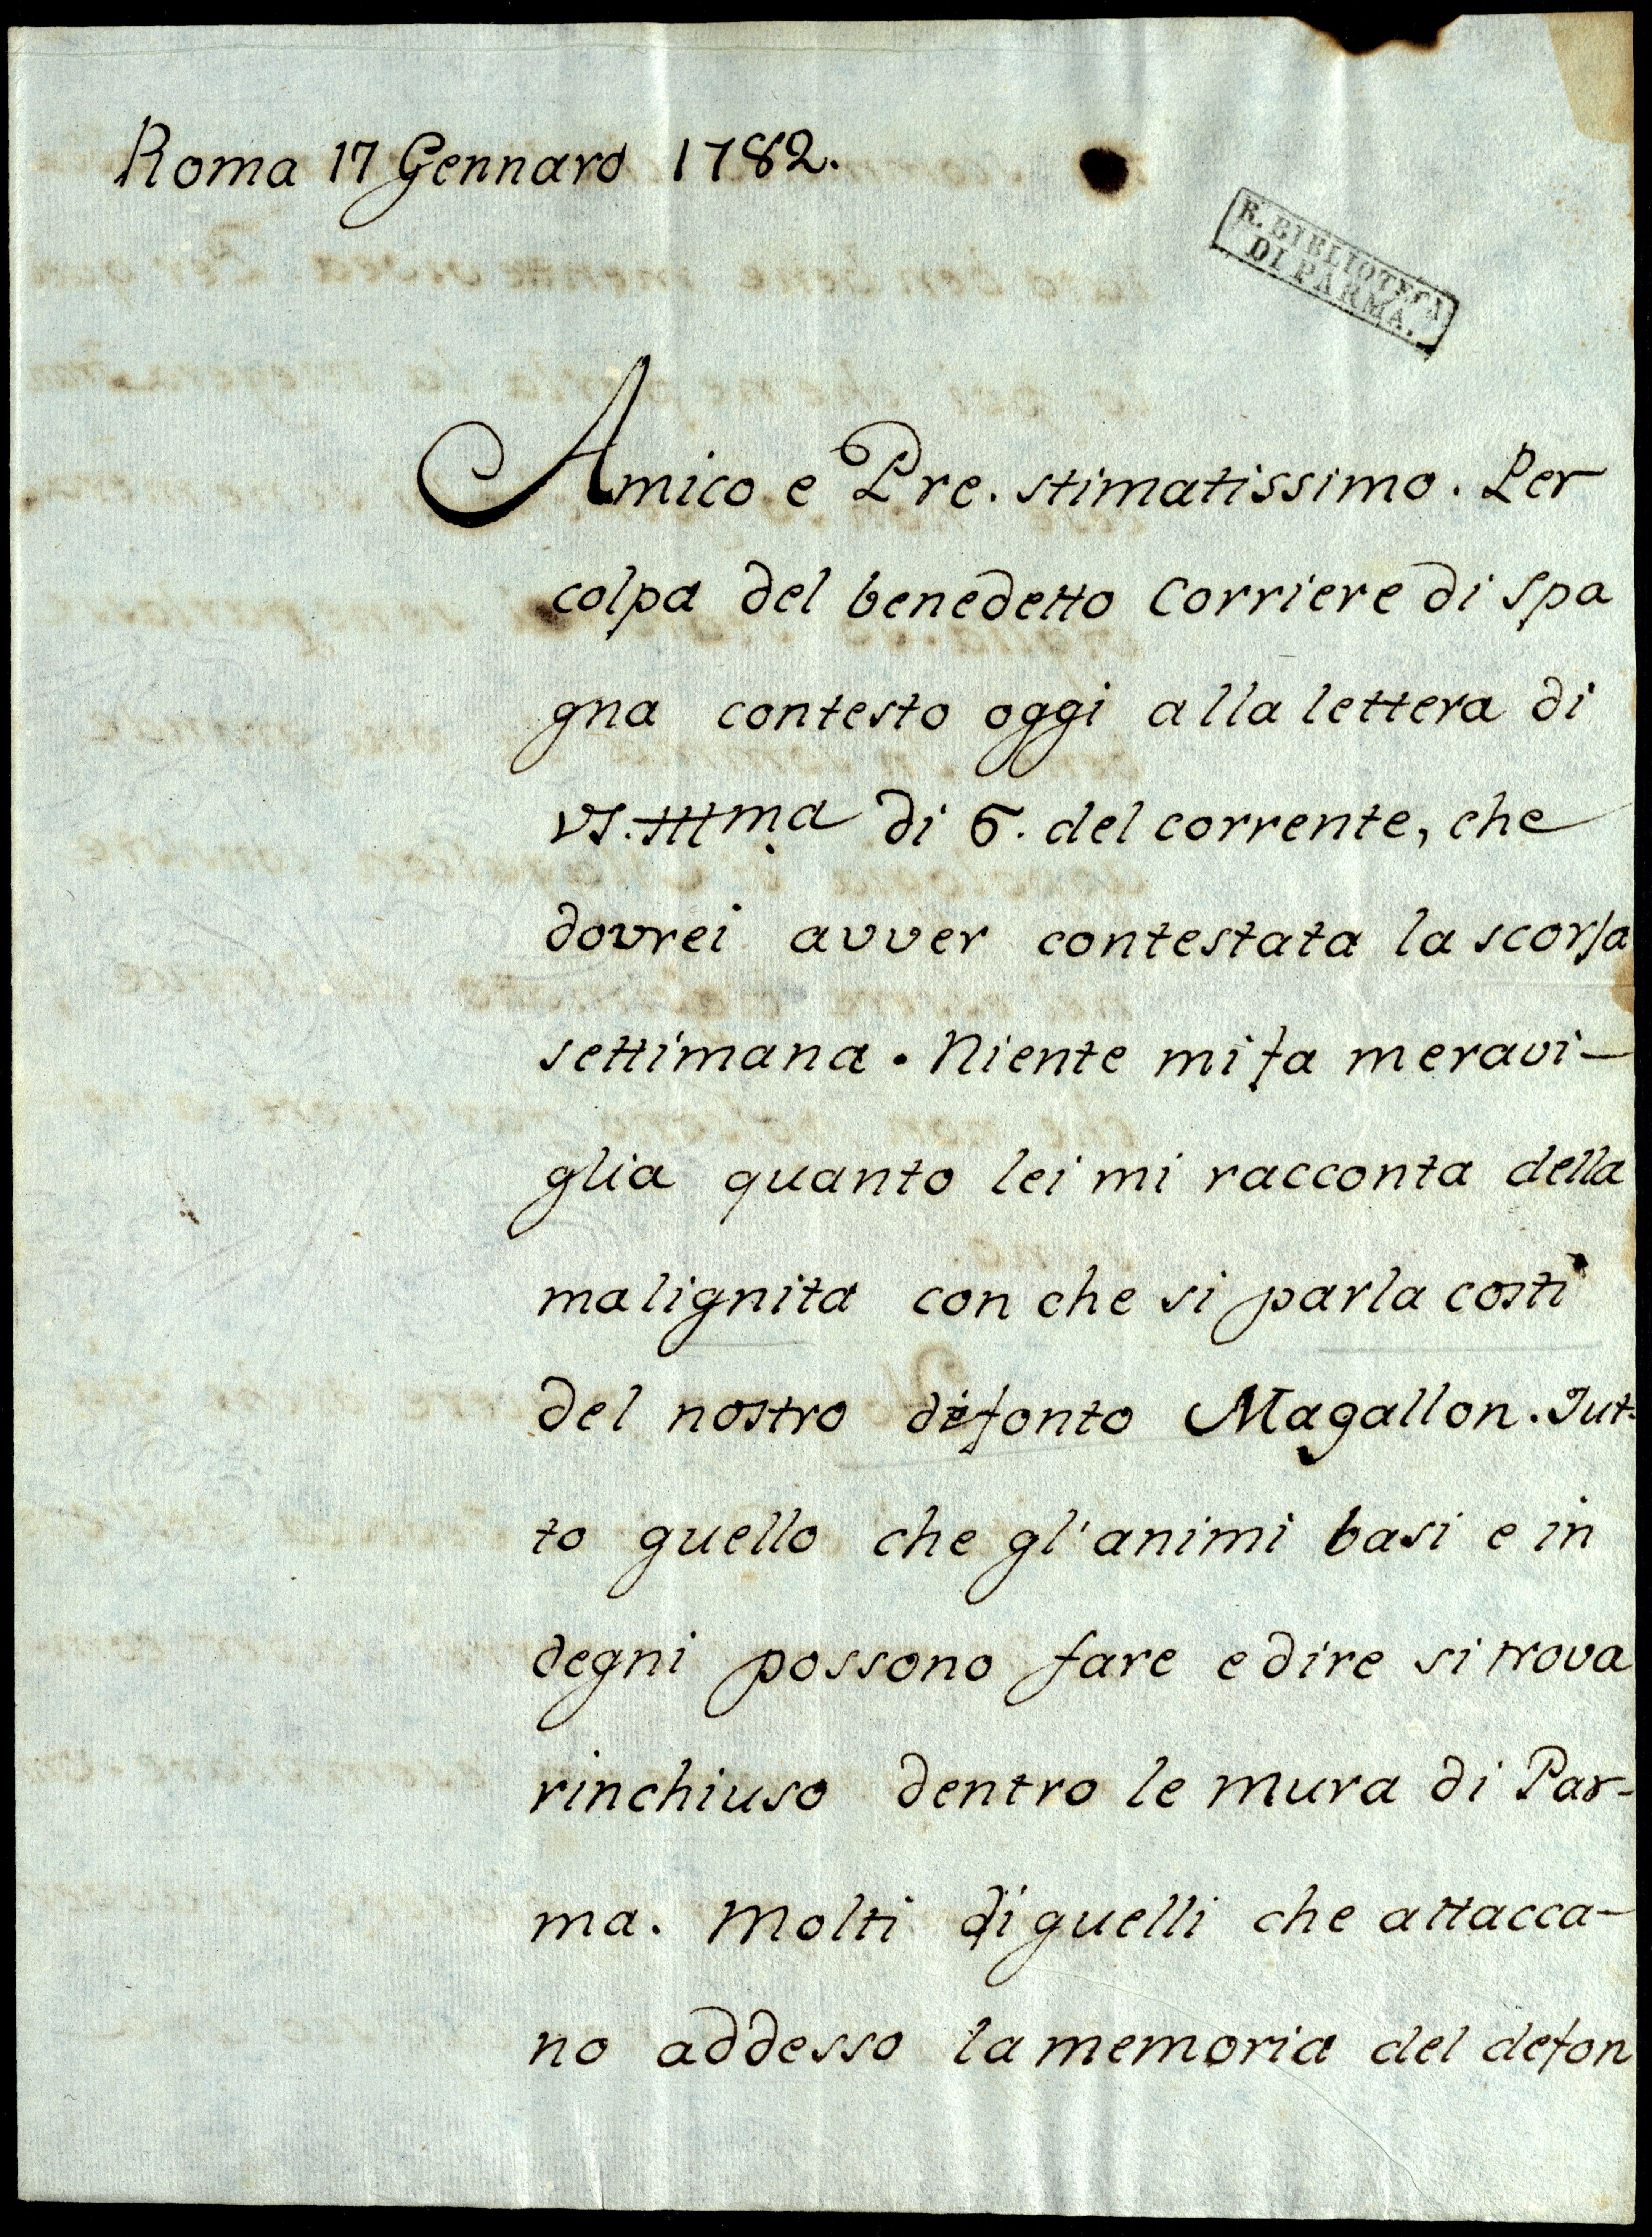 Roma 17 Gennaro 1782.
R. BIBLIOTECA
DI PARMA.
Amico e Pre. stimatissimo. Per
colpa del benedetto Corriere di Spa
gna contesto oggi alla lettera di
VS. Illma di 6. del corrente, che
dovrei avver contestata la scorsa
settimana. Niente mi fa meravi-
glia quanto lei mi racconta della
malignita con che si parla costì
del nostro defonto Magallon. Tut-
to quello che gl'animi basi e in
degni possono fare e dire si trova
rinchiuso dentro le mura di Par-
ma. Molti di quelli che attacca-
no addesso la memoria del defon